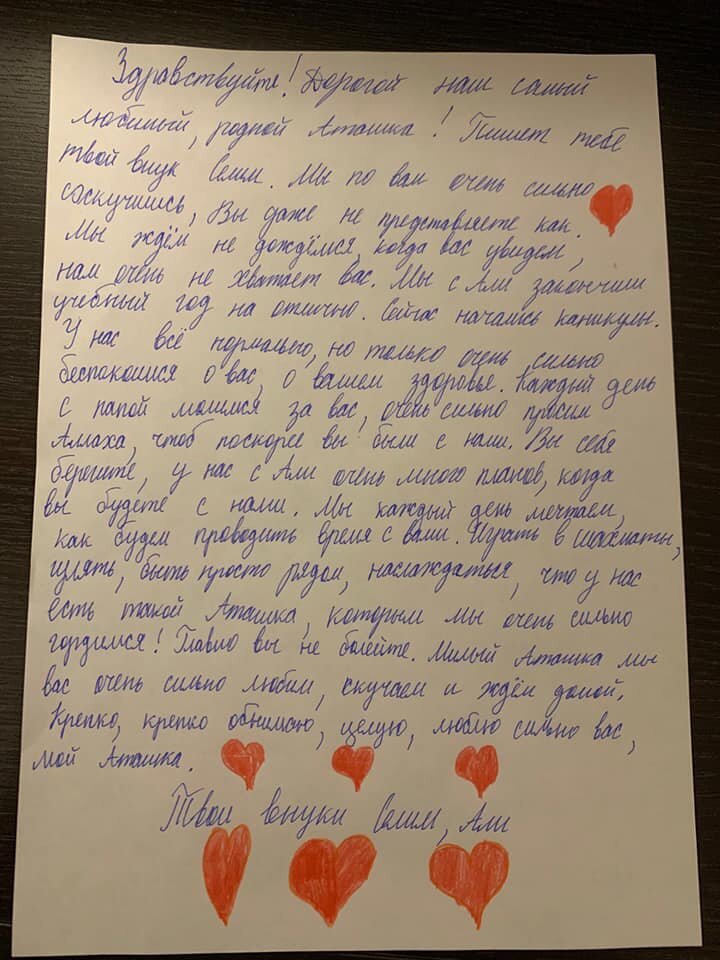 Здравствуйте! Дорогой наш самый
любимый, родной Аташка! Пишет тебе
твой внук Селим. Мы по вам очень сильно
соскучились, Вы даже не представляете как.
Мы ждём не дождёмся, когда вас увидем,
нам очень не хватает вас. Мы с Али закончили
учебный год на отлично. Сейчас начались каникулы.
У нас всё нормально, но только очень сильно
беспокоимся о вас, о вашем здоровье. Каждый день
с папой молимся за вас, очень сильно просим
Аллаха, чтоб поскорее вы были с нами. Вы себя
берегите, у нас с Али очень много планов, когда
вы будете с нами. Мы каждый день мечтаем,
как будем проводить время с вами. Играть в шахматы,
гулять, быть просто рядом, наслаждаться, что у нас
есть такой Аташка, которым мы очень сильно
гордимся! Главно вы не болейте. Милый Аташка мы
вас очень сильно любим, скучаем и ждём домой.
Крепко, крепко обнимаю, целую, люблю сильно вас,
мой Аташка.
Твои внуки Селим, Али